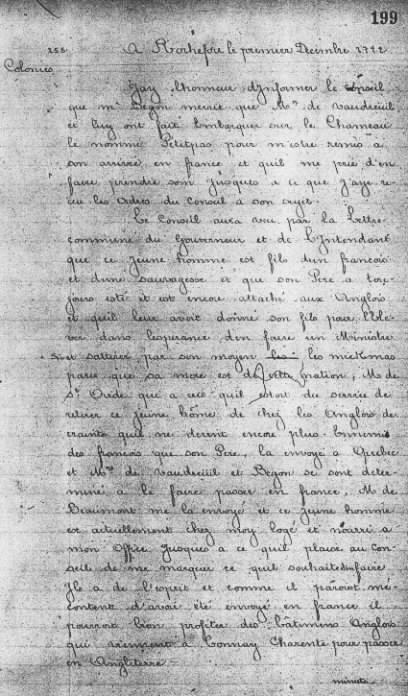 199
258
A Rochefort le premier Decembre 1722
Colonies
Jay l'honneur d'jnformer le Conseil
que mr Begon mecrit que Mr de Vaudreüil
et luy ont fait Embarquer sur le Chameau
le nommé Petitpas pour m'estre remis a
son arrivée en france et quil me prie d'en
faire prendre soin jusques a ce que j'aye re-
ceu les ordres du Conseil a son sujet
Le Conseil aura veu par la Lettre
commune du Gouverneur et de l'Intendant
que ce jeune homme est fils dun francois
et dune sauvagesse et que son Pere a tou-
jours esté et est encore attaché aux Anglois
et quil leur avoit donné son fils pour l'Ele-
ver dans lesperance den faire un Ministre
et sattirer par son moyen les mickmas
parce que sa mere est de cette nation, Mr de
St Ovide qui a creu quil estoit du service de
retirer ce jeune hôme de chez les Anglois de
crainte quil ne devint encore plus Ennemi
des francois que son Pere, la envoyé a Quebec
et Mrs de Vaudreüil et Begon se sont deter-
miné a le faire passer en france, Mr de
Beaumont me la envoyé et ce jeune homme
est actuellement chez moy logé et nourri a
mon office jusques a ce quil plaise au Con-
seil de me marquer ce quil souhaite faire
Il a de l'esprit et comme il paroist mé-
content d'avoir été envoyé en france il
pourroit bien profiter des bâtimens Anglois
qui viennent a Tonnay Charente pour passer
en Angleterre
minute